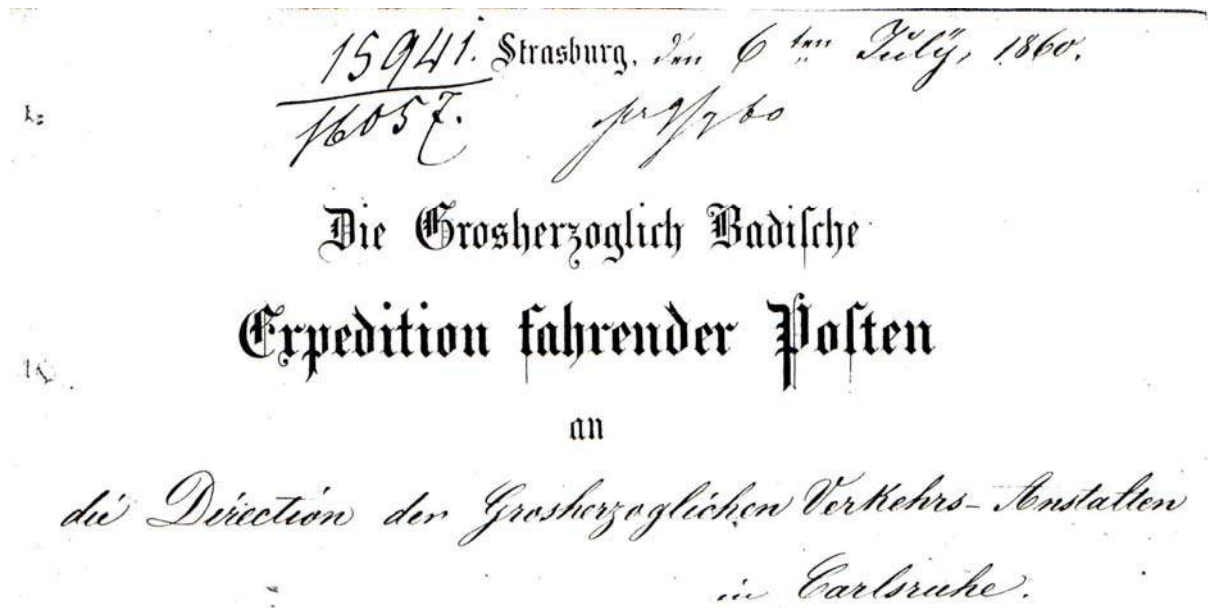 15941. Strasburg, den 6ten July, 1860.
16057. pr 9/7 60
Die Grosherzoglich Badische
Expedition fahrender Posten
an
die Direction der Grosherzoglichen Verkehrs-Anstalten
in Carlsruhe.